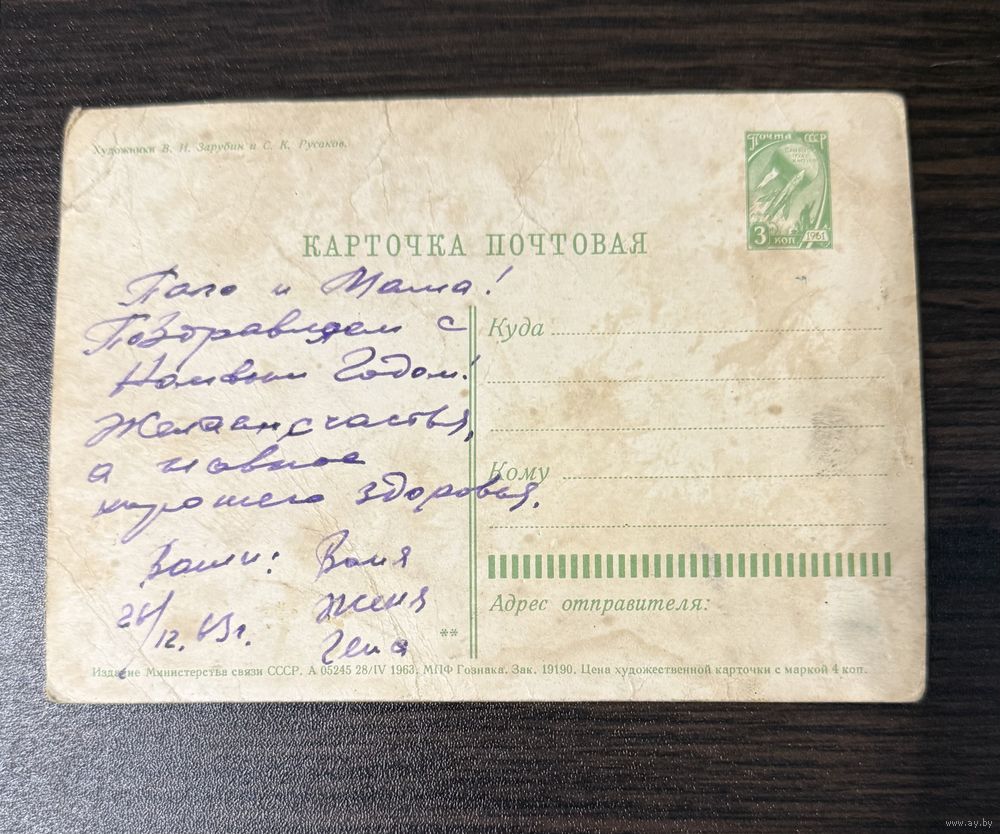 Художники В. И. Зарубин и С. К. Русаков.
Почта СССР
3 коп 1961
КАРТОЧКА ПОЧТОВАЯ
Папа и Мама!
Поздоравляем с
Новым Годом!
Желаем счастья,
а главное
хорошего здоровья.
Ваши: Валя
Женя
Гена
26/12.63г.
Куда
Кому
Адрес отправителя:
**
Издание Министерства связи СССР. А 05245 28/IV 1963. МПФ Гознака. Зак. 19190. Цена художественной карточки с маркой 4 коп.
www.ay.by